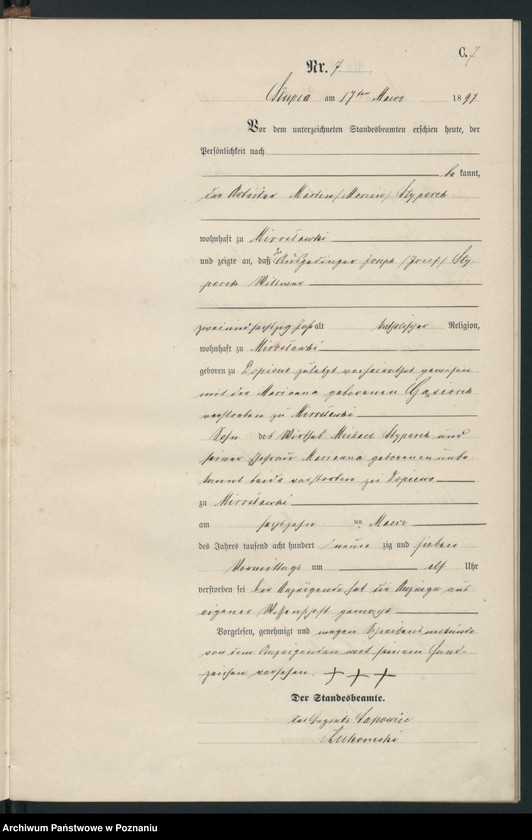 C. 7
Nr. 7
Słupca am 17ten Maerz 1897
Vor dem unterzeichneten Standesbeamten erschien heute, der
Persönlichkeit nach
be kannt,
der Arbeiter Martin /Marcin/ Styperek
wohnhaft zu Mirosławki
und zeigte an, daß der Ausgedinger Joseph /Józef/ Sty-
perek Wittwer
zweiundsechzig Jahr alt katholischer Religion,
wohnhaft zu Mirosławki
geboren zu Dopiewo zuletzt verheirathet gewesen
mit der Marianna geborenen
verstorben zu Mirosławki
Sohn des Wirths Michael Styperek und
seiner Ehefrau Marianna geborenen unbe-
kannt beide verstorben zu Dopiewo
zu Mirosławki
am sechszehn ten Maerz
des Jahres tausend acht hundert neun zig und sieben
Vormittags um elf Uhr
verstorben sei Der Anzeigende hat die Anzeige aus
eigener Wissenschaft gemacht
Vorgelesen, genehmigt und wegen Schreibensunkunde
von dem Anzeigenden mit seinem Hand-
zeichen versehen. + + +
Der Standesbeamte.
Łukomski
Archiwum Państwowe w Poznaniu